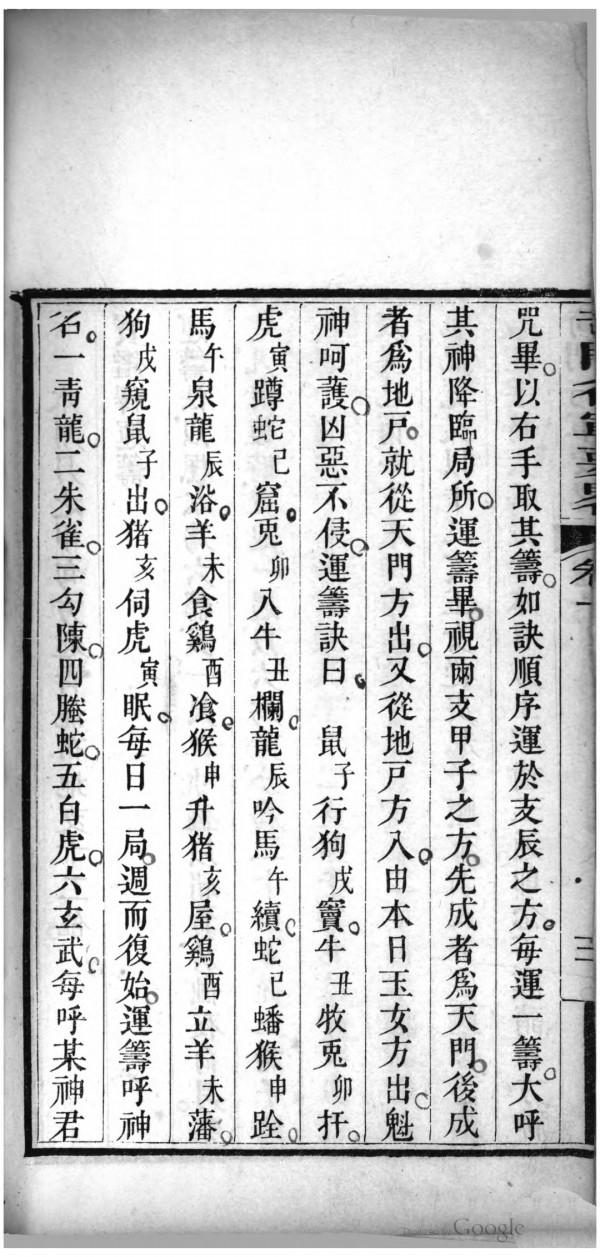 咒畢以右手取其籌如訣順序運於支辰之方每運一籌大呼
其神降臨局所運籌畢視兩支甲子之方先成者爲天門後成
者爲地戶就從天門方出又從地戶方入由本日玉女方出魁
神呵護凶惡不侵運籌訣曰 鼠子行狗戌竇牛丑牧兎卯扞
虎寅蹲蛇巳窟兎卯入牛丑欄龍辰吟馬午續蛇巳蟠猴申跧
馬午泉龍辰浴羊未食鷄酉飡猴申升猪亥屋鷄酉立羊未藩
狗戌窺鼠子出猪亥伺虎寅眠每日一局週而復始運籌呼神
名一靑龍二朱雀三勾陳四螣蛇五白虎六玄武每呼某神君
Google